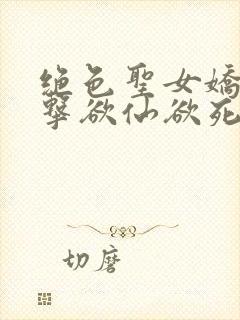 絕色聖女嬌
擊欲仙欲死
切磨